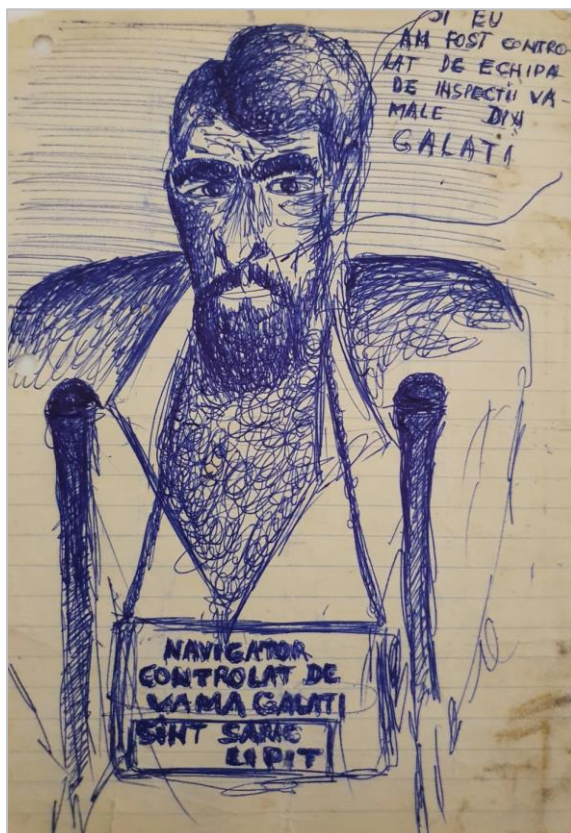 ȘI EU
AM FOST CONTRO-
LAT DE ECHIPA
DE INSPECTII VA-
MALE DIN
GALATI
NAVIGATOR
CONTROLAT DE
VAMA GALATI
SÎNT SARIC
LIPIT